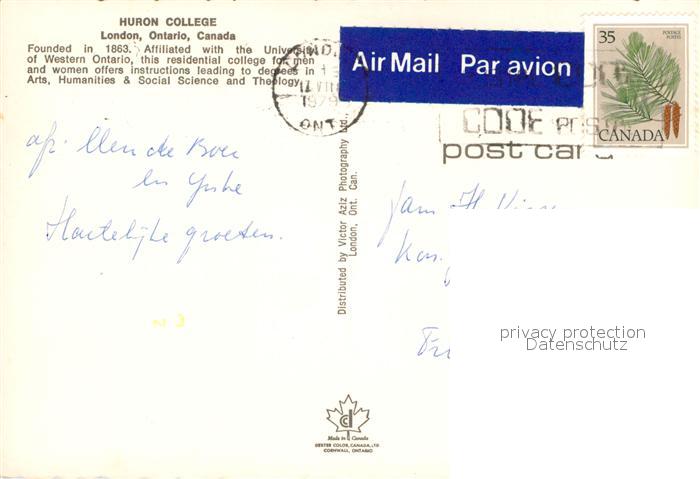 HURON COLLEGE
London, Ontario, Canada
Founded in 1863. Affiliated with the University
of Western Ontario, this residential college for men
and women offers instructions leading to degrees in
Arts, Humanities & Social Science and Theology.
1979
ONT
Air Mail Par avion
35
POSTAGE
POSTES
CANADA
CODE
CODE POSTAL
post card
de Boer
en
Hartelijke groeten.
Distributed by Victor Aziz Photography Ltd.,
London, Ont. Can.
Jan H.
privacy protection
Datenschutz
Made in Canada
DEXTER COLOR, CANADA, LTD.
CORNWALL, ONTARIO